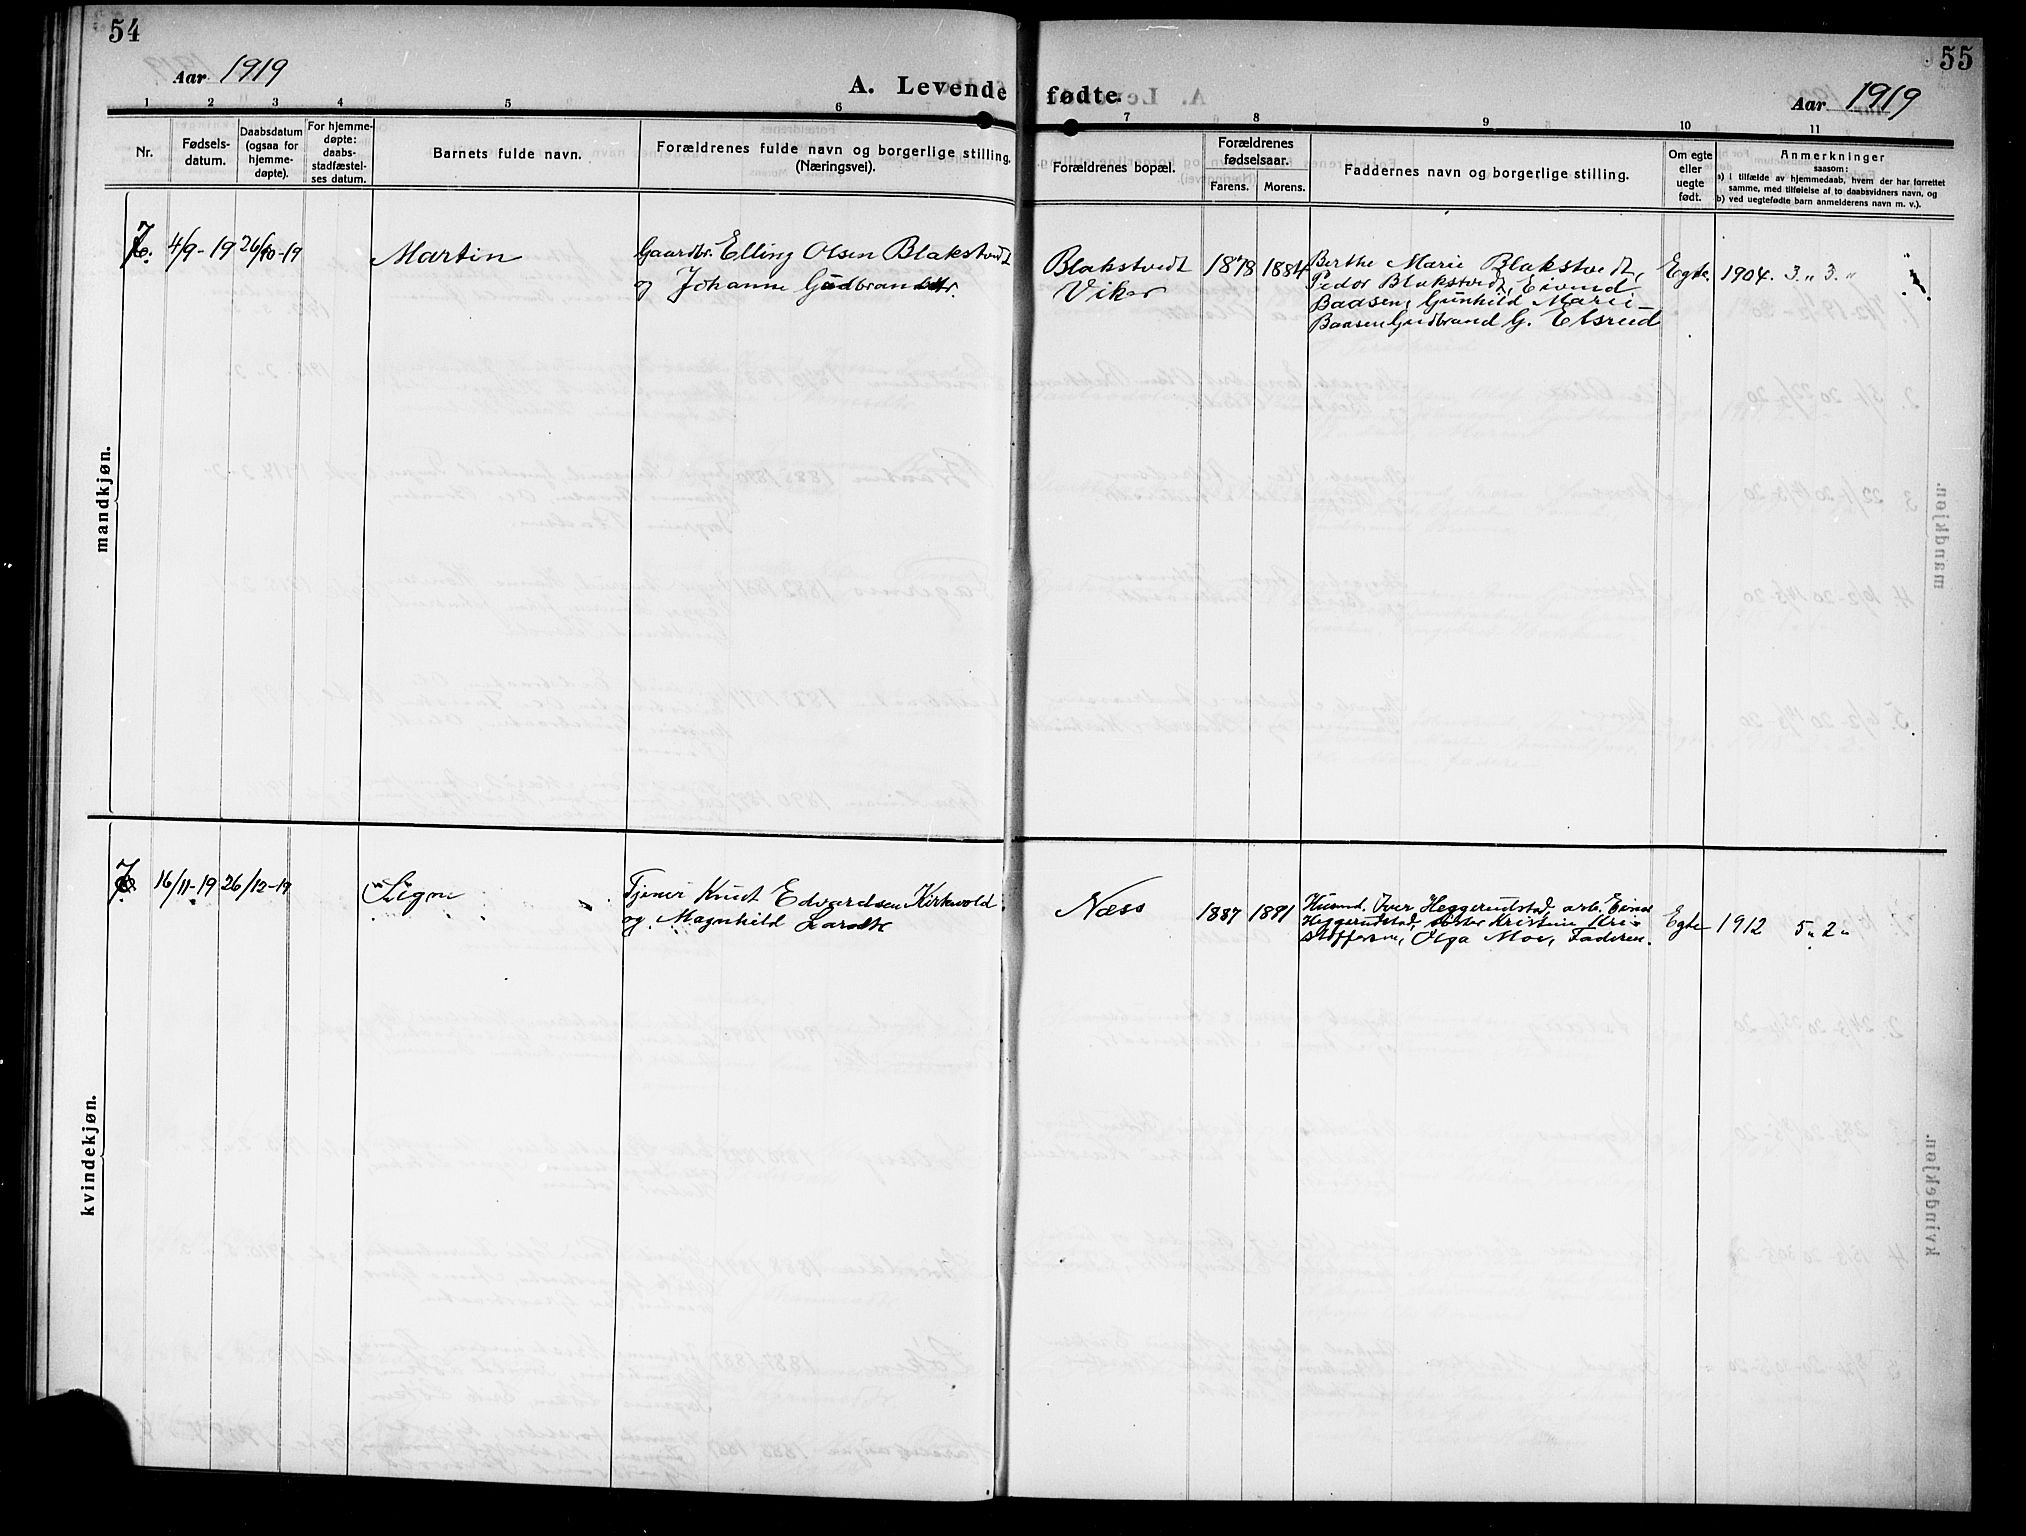 54
Aar 1919
A. Levende fødte.
Aar 1919
55
1 2 3 4 5 6 7 8 9 10 11
Nr.
Fødsels-
datum.
Daabsdatum
(ogsaa for
hjemme-
døpte).
For hjemme-
døpte:
daabs-
stadfæstel-
ses datum.
Barnets fulde navn.
Forældrenes fulde navn og borgerlige stilling.
(Næringsvei).
Forældrenes bopæl.
Forældrenes
fødselsaar.
Farens. Morens.
Faddernes navn og borgerlige stilling.
Om egte
eller
uegte
født.
Anmerkninger
saasom:
a) i tilfælde av hjemmedaab, hvem der har forrettet
samme, med tilføielse af to daabsvidners navn, og
b) ved uegtefødte barn anmelderens navn m. v.).
mandkjøn.
7. 4/9-19 26/10-19
Martin
Gaardbr. Elling Olsen Blakstvedt
og Johanne Gudbrandsdtr.
Blakstvedt
Viker
1878 1884
Berthe Marie Blakstvedt,
Peder Blakstvedt, Eivind
Baasen, Gunhild Marie
Baasen Gudbrand G. Elsrud
Egte 1904. 3 " 3. "
kvindekjøn.
7. 16/11-19 26/12-19
Signe
Tjener Knut Edvardsen Kirkevold
og Magnhild Larsdtr
Næss
1887 1891
Husmd. Iver Heggerudstad, arb. Eivind
Heggerudstad, søster Kristine Kri-
stoffersen, Olga Moe, Faderen.
Egte 1912 5 " 2 "